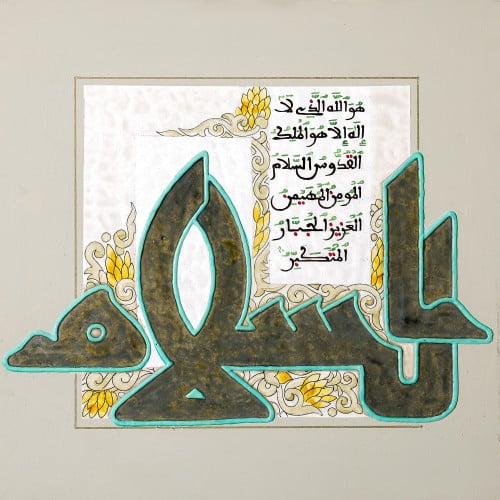 هُوَ اللَّهُ الَّذِي لَا
إِلَهَ إِلَّا هُوَ الْمَلِكُ
الْقُدُّوسُ السَّلَامُ
الْمُؤْمِنُ الْمُهَيْمِنُ
الْعَزِيزُ الْجَبَّارُ
الْمُتَكَبِّرُ
السلام